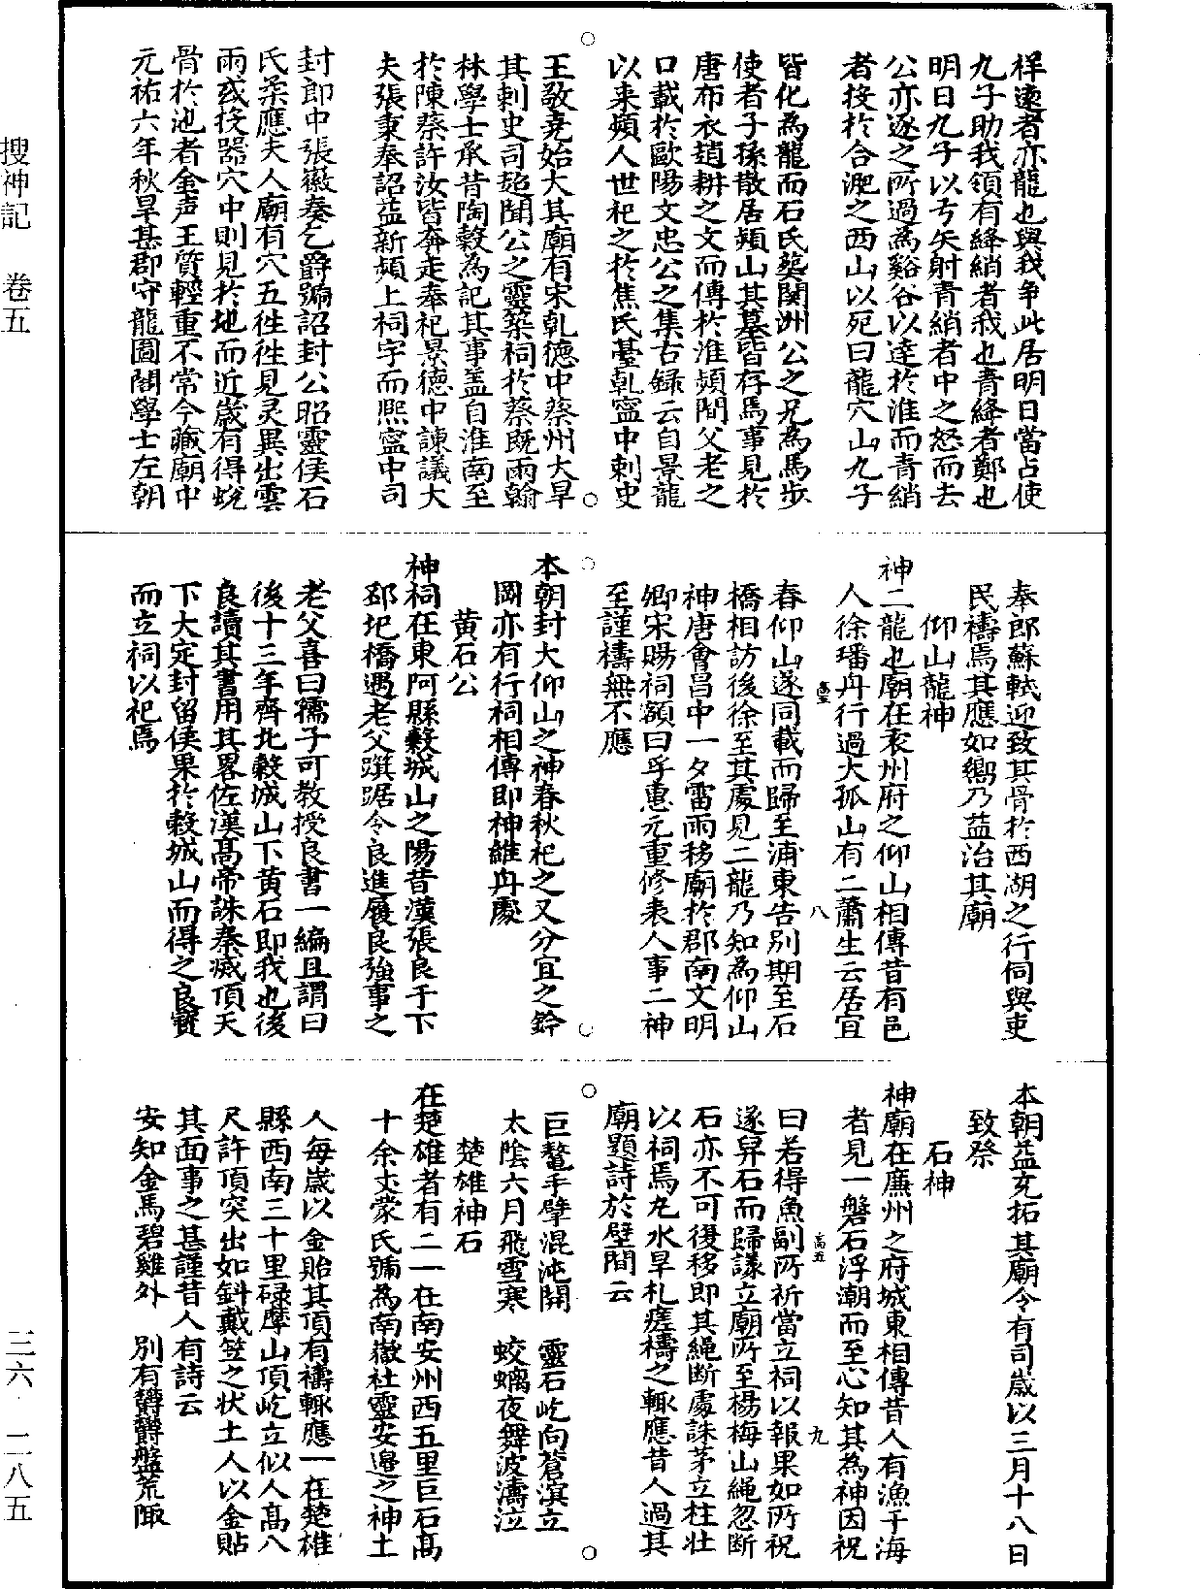 祥遠者亦龍也與我爭此居明日當占使
九子助我領有絳綃者我也青絳者鄭也
明日九子以弓矢射青綃者中之怒而去
公亦逐之所過為谿谷以達於淮而青綃
者投於合淝之西山以死曰龍穴山九子
皆化為龍而石氏葬関洲公之兄為馬步
使者子孫散居頴山其墓皆存焉事見於
唐布衣趙耕之文而傳於淮頴間父老之
口載於歐陽文忠公之集古録云自景龍
以来頴人世祀之於焦氏臺乹寧中刺史
王敬尭始大其廟有宋乹德中蔡州大旱
其刺史司超聞公之靈築祠於蔡既雨翰
林學士承昔陶穀為記其事盖自淮南至
於陳蔡許汝皆奔走奉祀景徳中諫議大
夫張秉奉詔益新頴上祠宇而熙寧中司
封郎中張徽奏乞爵號詔封公昭靈侯石
氏柔應夫人廟有穴五徃徃見灵異出雲
雨或投器穴中則見於地而近歲有得蛻
骨於池者金声玉質輕重不常今藏廟中
元祐六年秋旱甚郡守龍圖閣學士左朝
奉郎蘇軾迎致其骨於西湖之行祠與吏
民禱焉其應如嚮乃益治其廟
仰山龍神
神二龍也廟在袁州府之仰山相傳昔有邑
人徐璠舟行過大孤山有二蕭生云居宜
春仰山遂同載而歸至浦東告別期至石
橋相訪後徐至其處見二龍乃知為仰山
神唐會昌中一夕雷雨移廟於郡南文明
鄉宋賜祠額曰孚惠元重修表人事二神
至謹禱無不應
本朝封大仰山之神春秋祀之又分宜之鈐
岡亦有行祠相傳即神維舟處
黄石公
神祠在東阿縣穀城山之陽昔漢張良于下
邳圯橋遇老父踑踞令良進履良強事之
老父喜曰孺子可教授良書一編且謂曰
後十三年齊北穀城山下黄石即我也後
良讀其書用其畧佐漢高帝誅秦滅項天
下大定封留侯果於穀城山而得之良寳
而立祠以祀焉
本朝益充拓其廟令有司歲以三月十八日
致祭
石神
神廟在廉州之府城東相傳昔人有漁于海
者見一磐石浮潮而至心知其為神因祝
曰若得魚副所祈當立祠以報果如所祝
遂舁石而歸議立廟所至楊梅山繩忽断
石亦不可復移即其繩断處誅茅立柱壮
以祠焉九水旱札瘥禱之輙應昔人過其
廟題詩於壁間云
巨鼇手擘混沌開　靈石屹向蒼溟立
太陰六月飛雪寒　蛟螭夜舞波濤泣
楚雄神石
在楚雄者有二一在南安州西五里巨石高
十余丈蒙氏號為南嶽社靈安邉之神土
人每歲以金貼其頂有禱輙應一在楚雄
縣西南三十里碌摩山頂屹立似人高八
尺許頂突出如斜戴笠之状土人以金貼
其面事之甚謹昔人有詩云
安知金馬碧雞外　別有欝欝盤荒陬
八
九
搜神記　卷五
三六·二八五